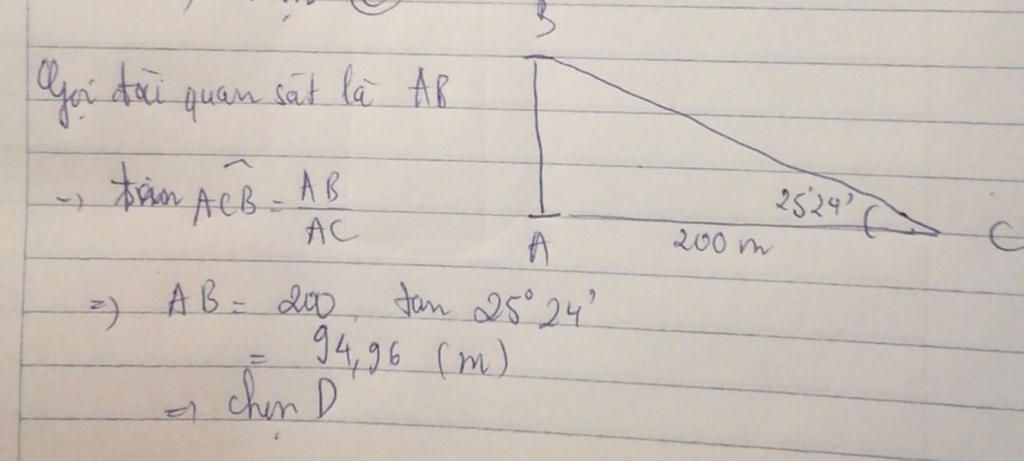 B
Gọi đài quan sát là AB
→ tan ACB = AB / AC
25°24'
200 m
A
C
=) AB = 200 . tan 25°24'
= 94,96 (m)
=) chọn D